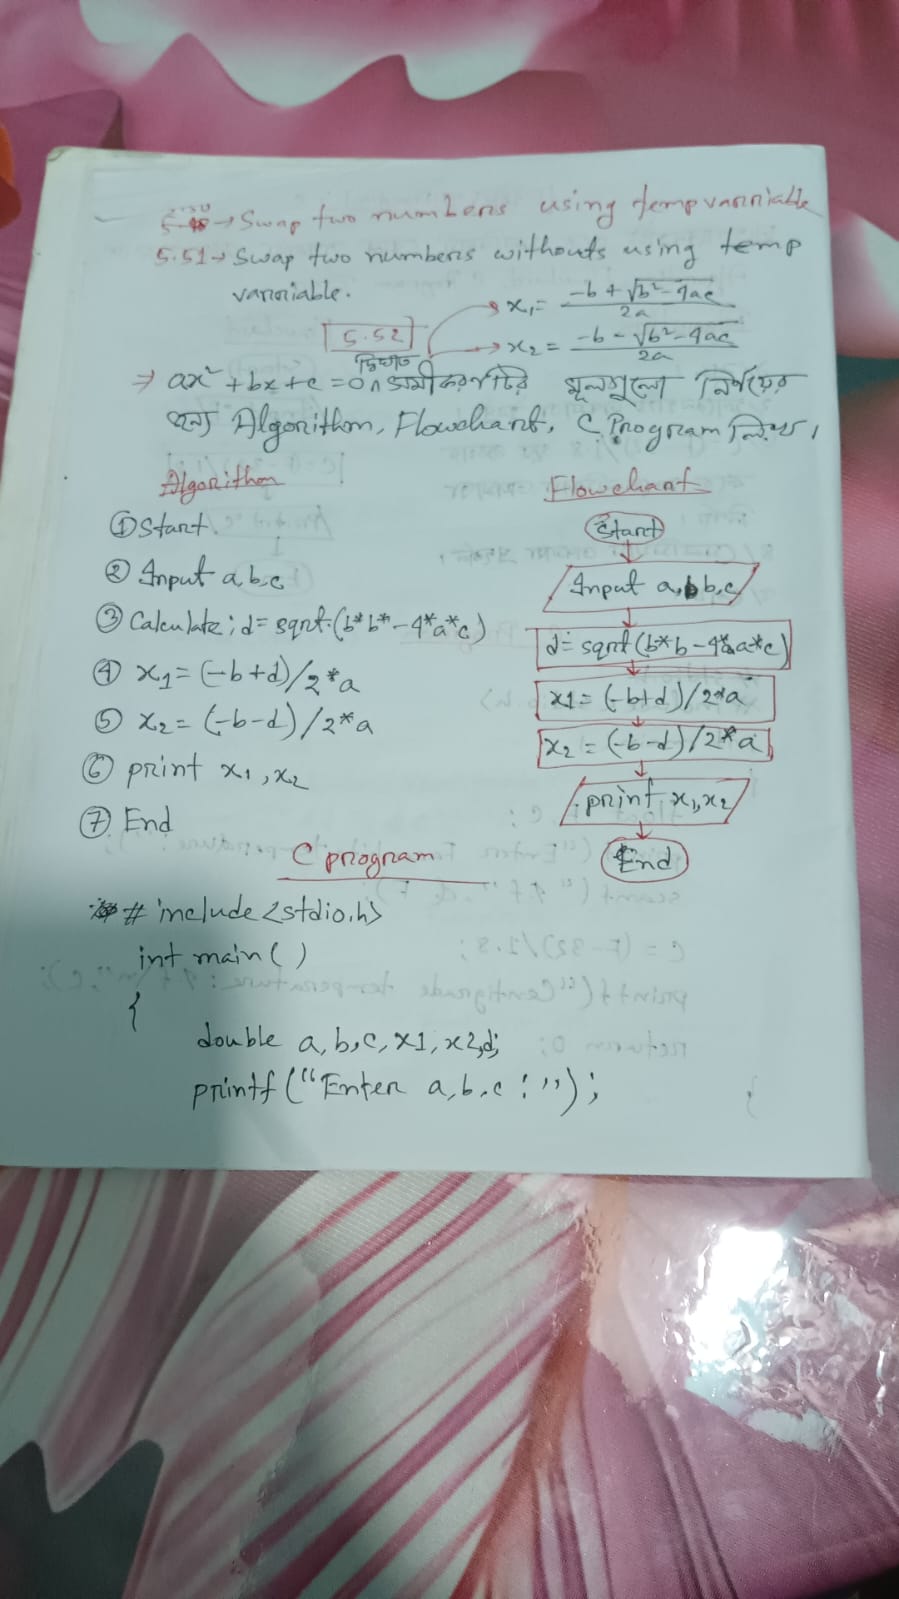 5.50 → Swap two numbers using temp varriable
5.51 → Swap two numbers withouts using temp
varriable.
x₁ = (-b + √(b² - 4ac)) / 2a
5.52
x₂ = (-b - √(b² - 4ac)) / 2a
দ্বিঘাত
⇒ ax² + bx + c = 0 ^ সমীকরণটির মূলগুলো নির্ণয়ের
জন্য Algorithm, Flowchart, C Program লিখ।
Algorithm
① Start
② Input a, b, c
③ Calculate; d = sqrt.(b*b*-4*a*c)
④ x₁ = (-b+d)/2*a
⑤ x₂ = (-b-d)/2*a
⑥ print x₁, x₂
⑦ End
Flowchart
Start
Input a, b, c
d = sqrt(b*b-4*a*c)
x1 = (-b+d)/2*a
x₂ = (-b-d)/2*a
print x₁, x₂
End
C program
# include <stdio.h>
int main ()
{
double a, b, c, x1, x2, d;
printf ("Enter a, b, c : ");